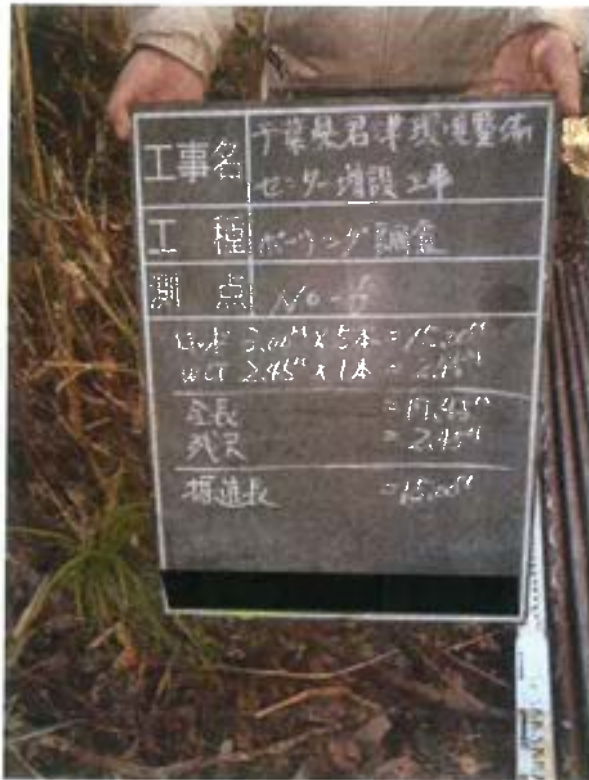 工事名 千葉県君津環境整備
センター増設工事
工種 ボーリング調査
測点 No-
3.00ᴹ x 5本 = 15.00ᴹ
2.45ᴹ x 1本 = 2.45ᴹ
全長 = 17.45ᴹ
残尺 = 2.45ᴹ
掘進長 = 15.00ᴹ